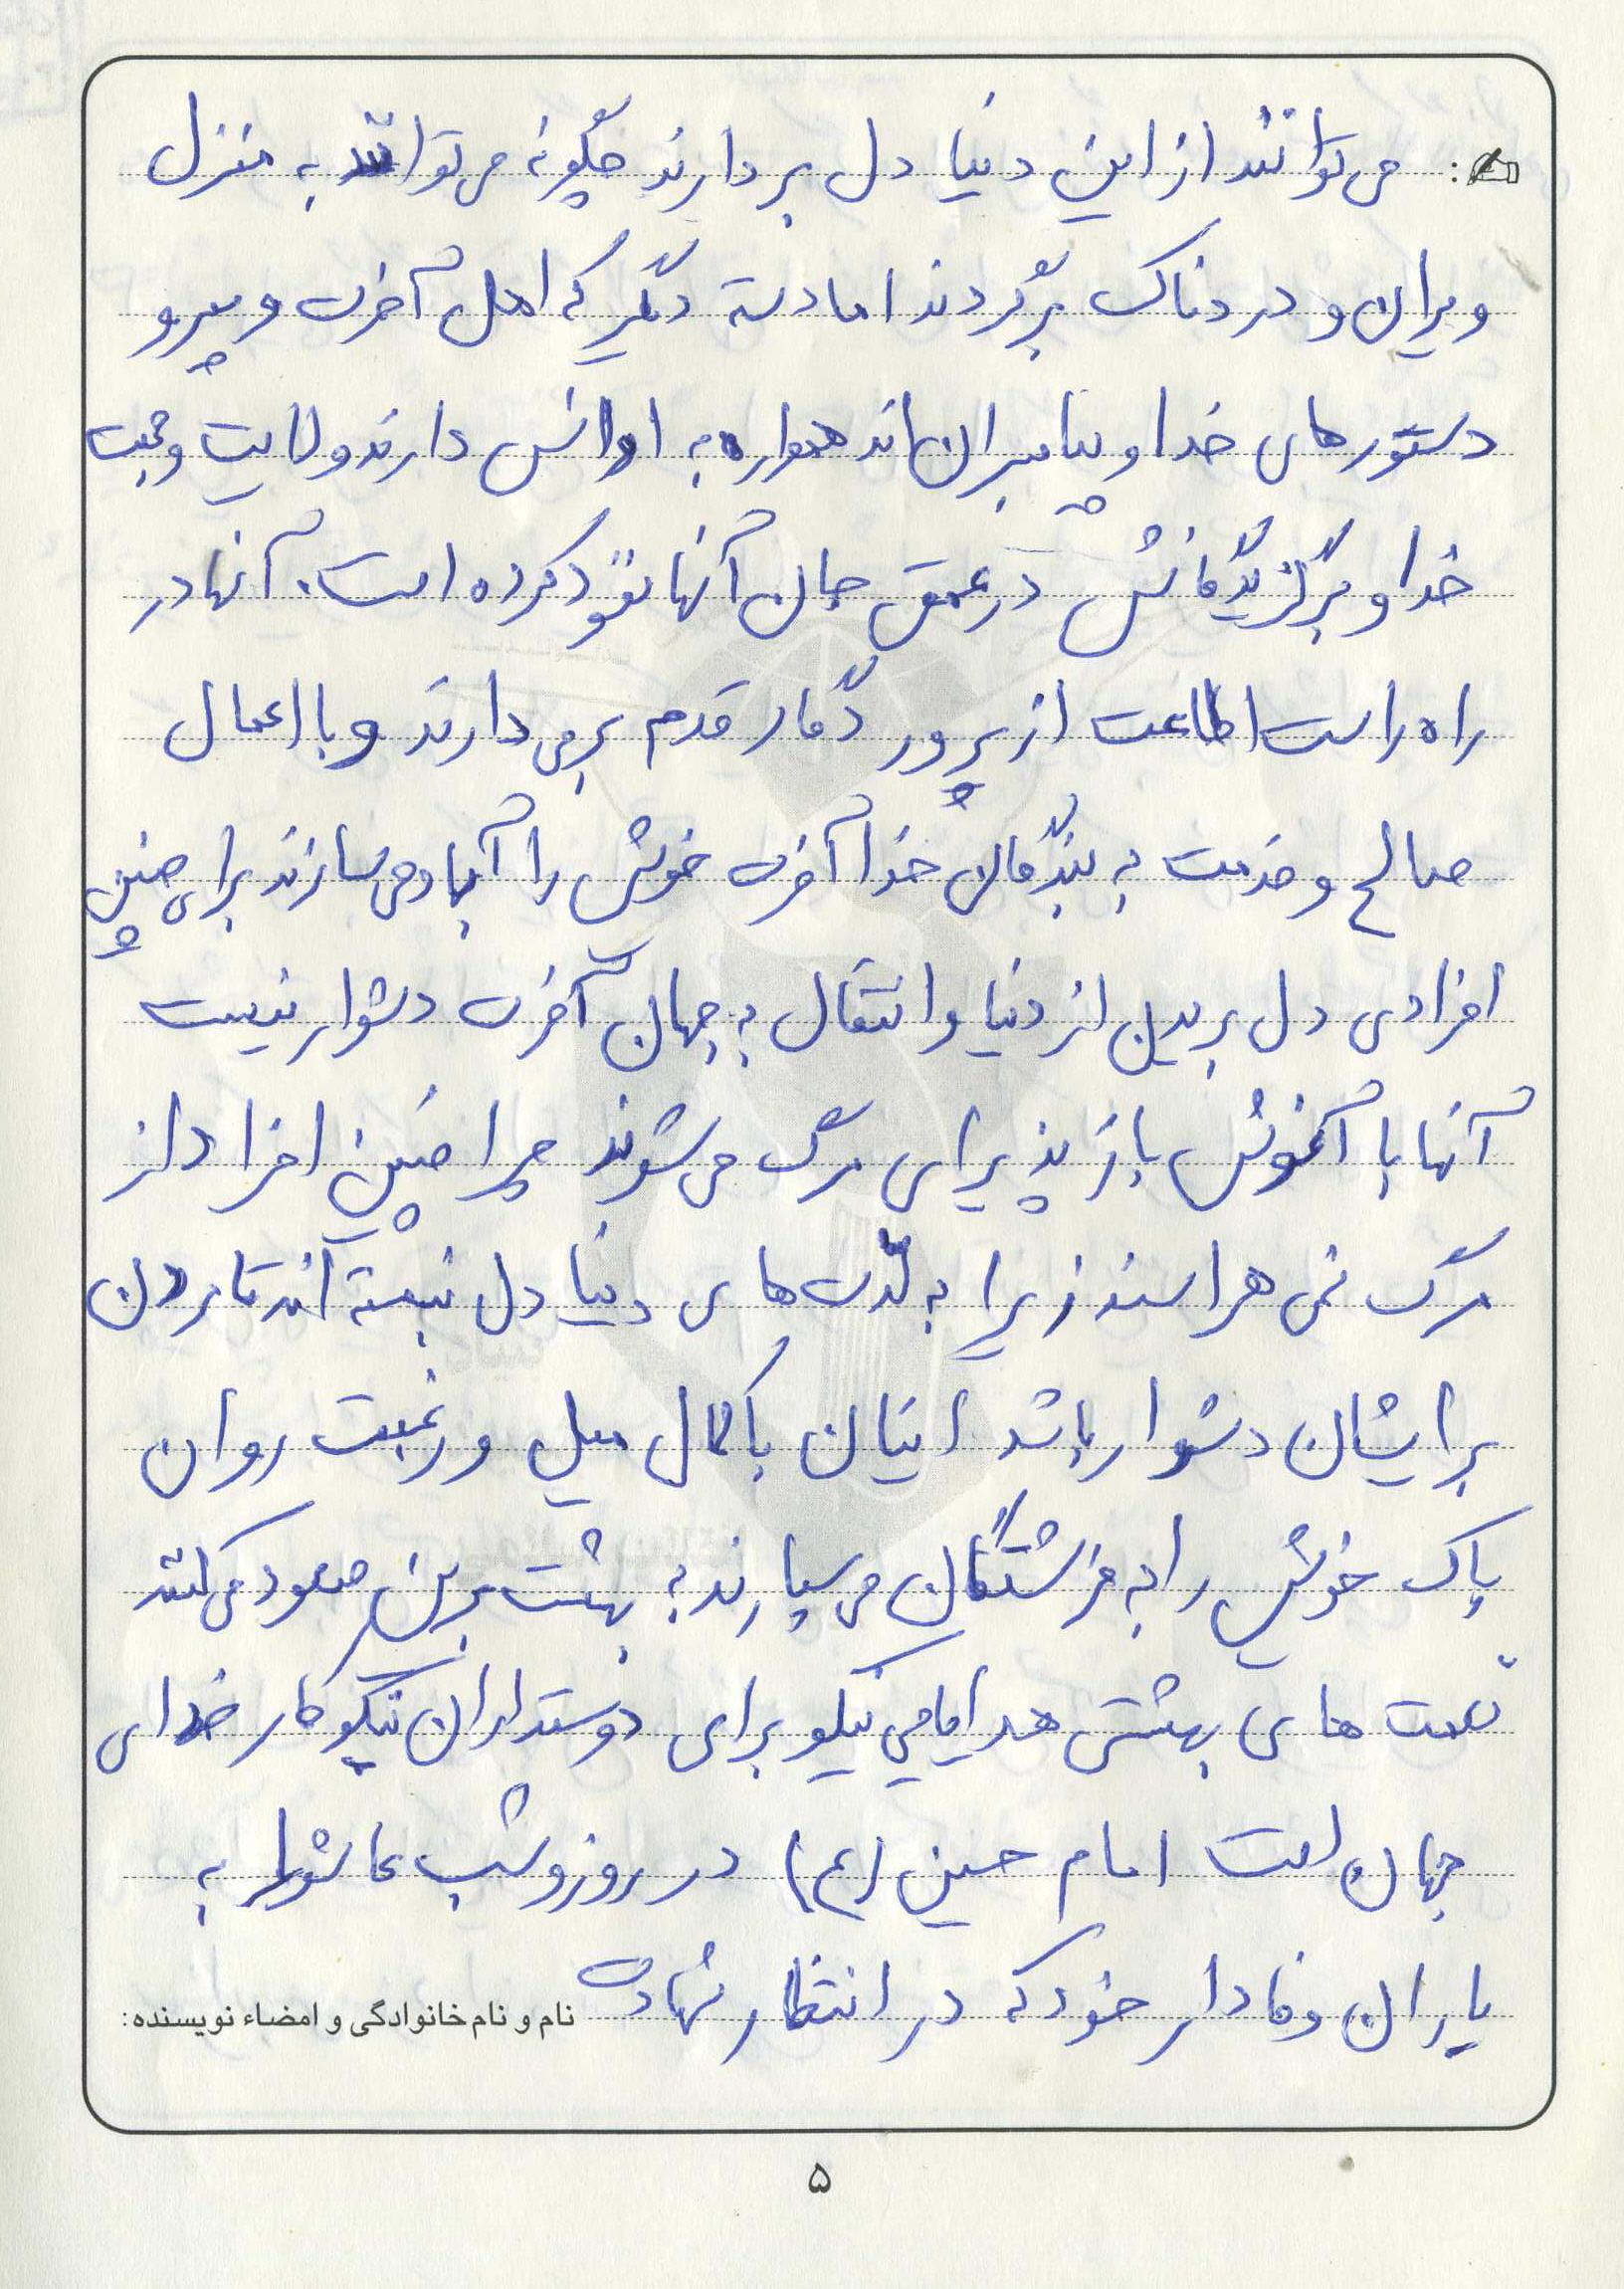 می‌توانند از این دنیا دل بردارند چگونه می‌توانند به منزل
ویران و دردناک برگردند اما دسته دیگر که اهل آخرت و پیرو
دستورهای خدا و پیامبران‌اند همواره به او انس دارند ولایت و محبت
خدا و برگزیدگانش در عمق جان آنها نفوذ کرده است. آنها در
راه راست اطاعت از پروردگار قدم برمی‌دارند و با اعمال
صالح و خدمت به بندگان خدا آخرت خویش را آباد می‌سازند برای چنین
افرادی دل بریدن از دنیا و انتقال به جهان آخرت دشوار نیست
آنها با آغوش باز پذیرای مرگ می‌شوند چرا چنین افراد از
مرگ نمی هراسند زیرا به لذت‌های دنیا دل نبسته‌اند تا مردن
برایشان دشوار باشد اینان با کمال میل و رغبت روان
پاک خویش را به فرشتگان می‌سپارند به بهشت برین صعود می‌کنند
نعمت های بهشتی هدایایی نیکو برای دوستداران نیکوکار خدای
جهان است امام حسین (ع) در روز و شب عاشورا به
یاران وفادار خود که در انتظار شهادت
نام و نام خانوادگی و امضاء نویسنده:
۵